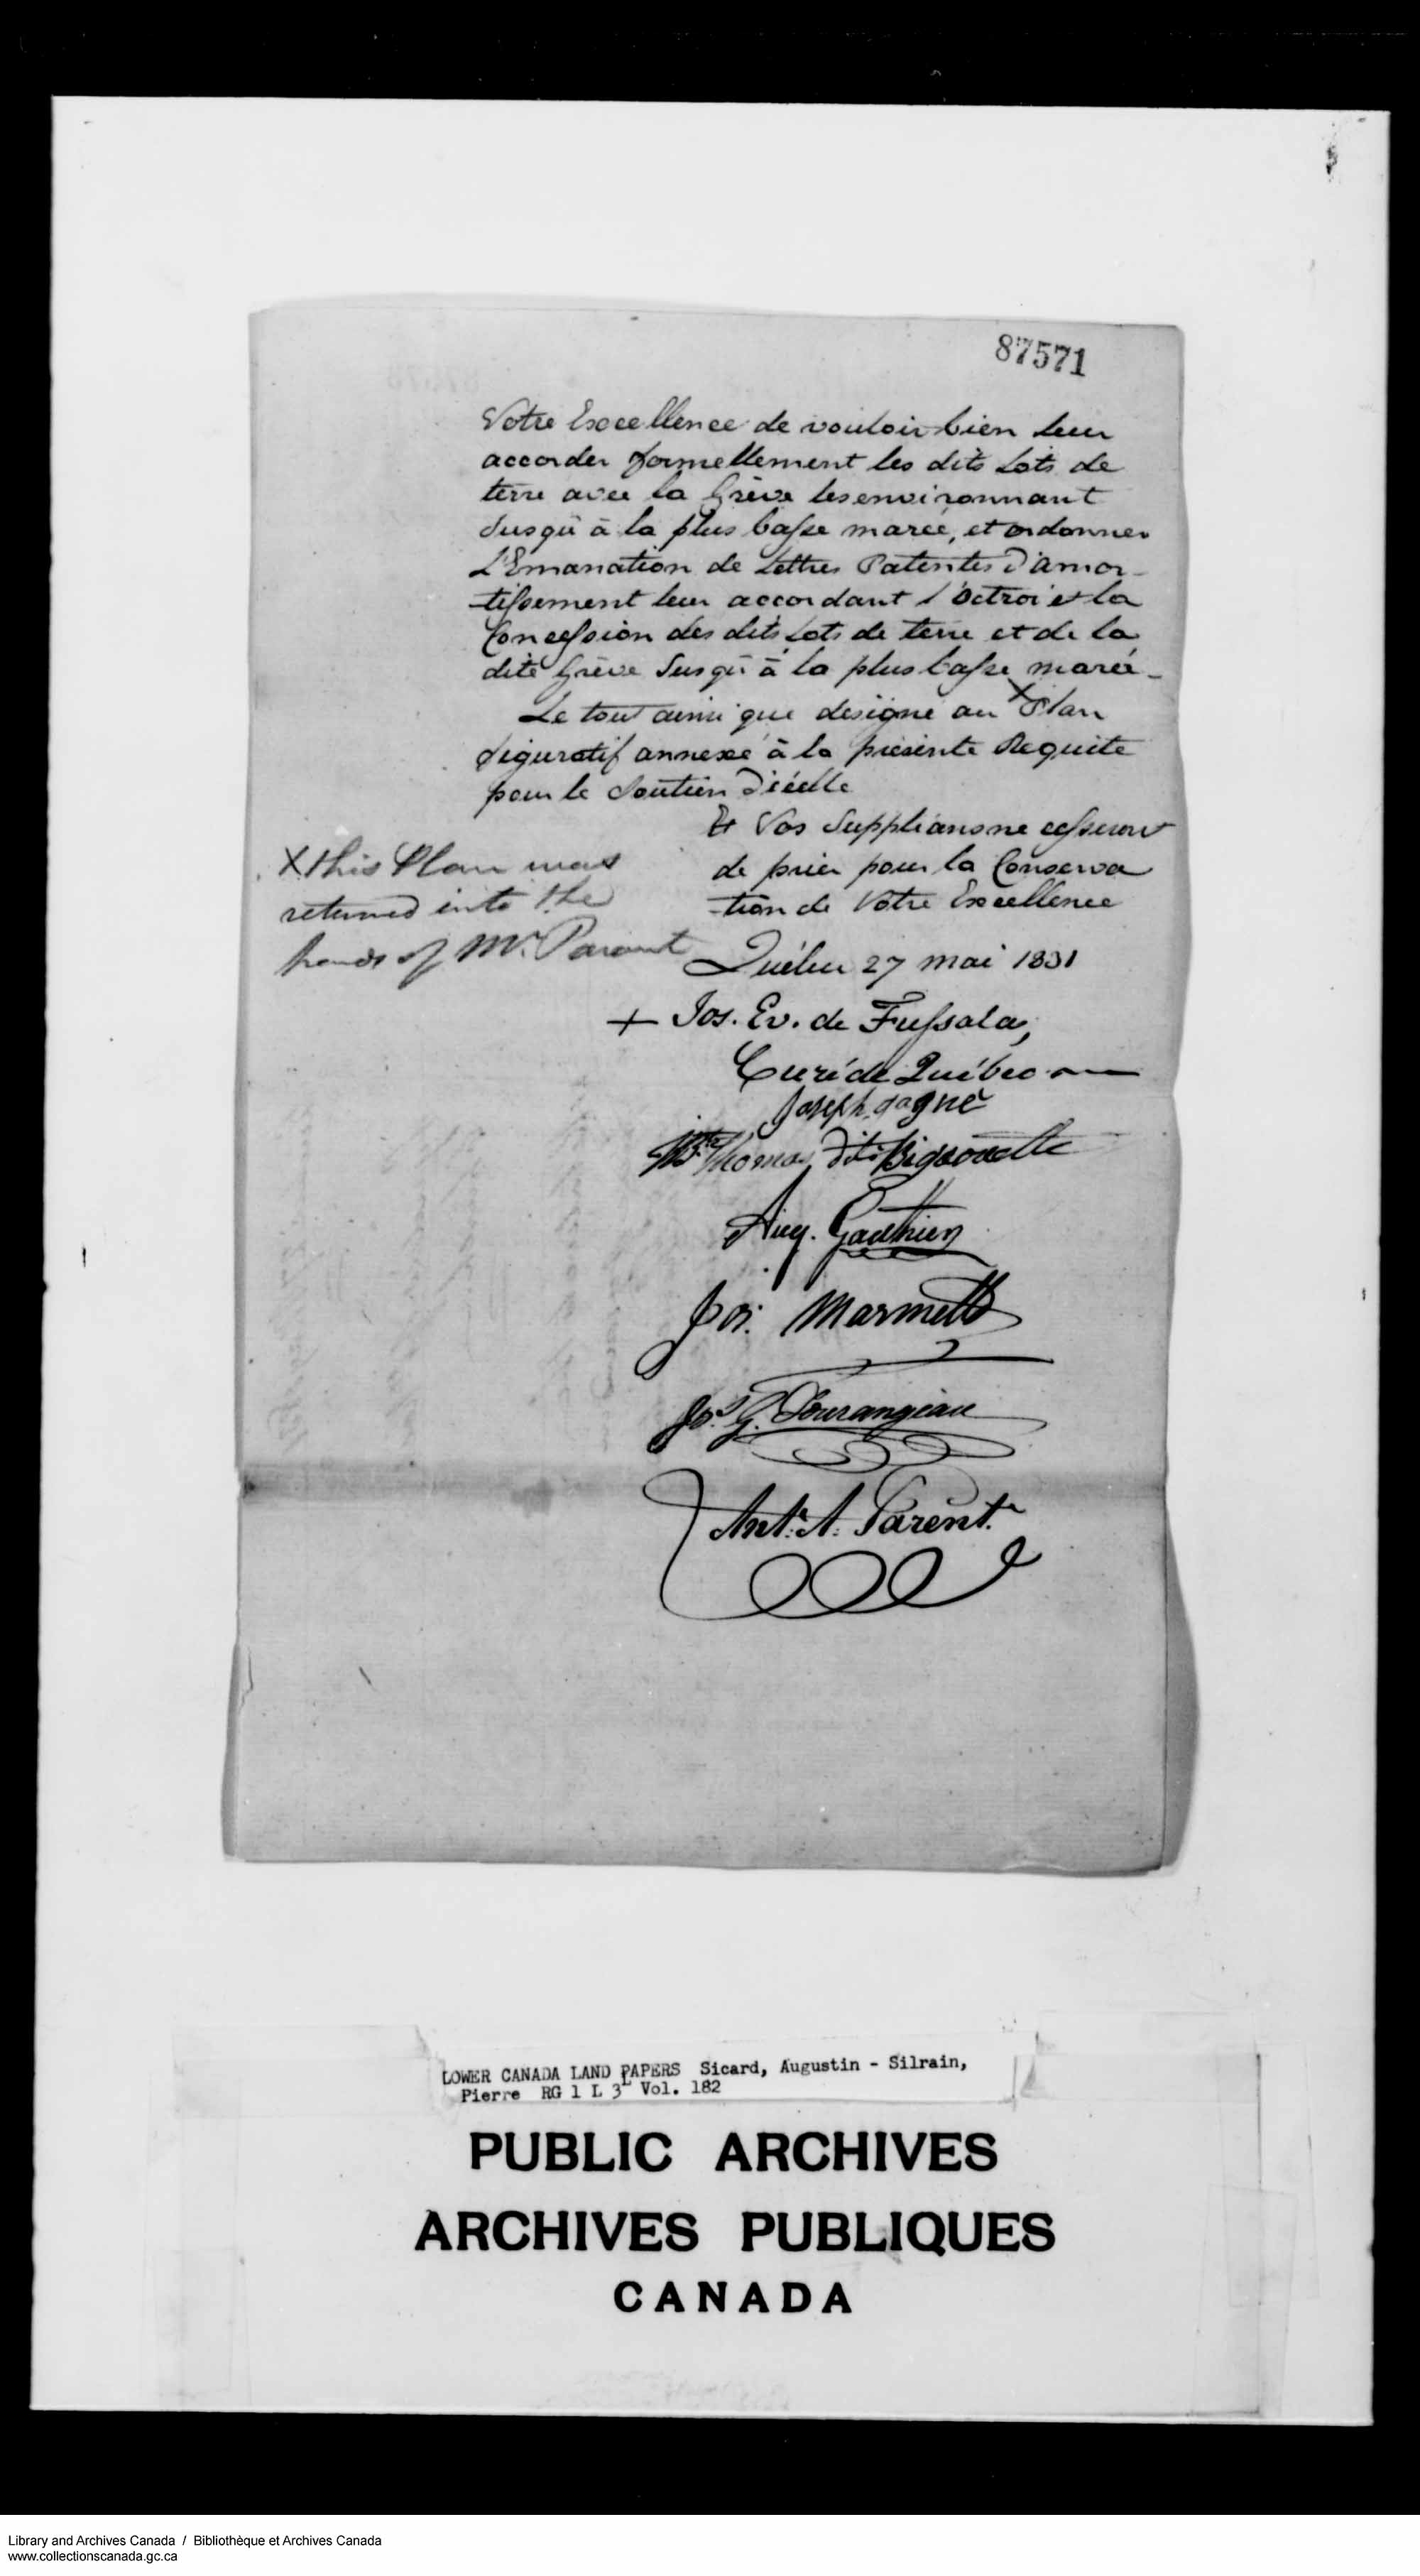 87571
Votre Excellence de vouloir bien leur
accorder formellement les dits Lots de
terre avec la Grève les environnant
Jusqu'à la plus basse marée, et ordonner
L'Emanation de Lettres Patentes D'amor-
-tissement leur accordant l'Octroi et la
Concession des dits Lots de terre et de la
dite Grève Jusqu'à la plus basse marée -
Le tout ainsi que designé au X Plan
figuratif annexé à la présente Requête
pour le Soutien D'icelle
Et Vos Supplians ne cesseront
de prier pour la Conserva
-tion de Votre Excellence
X this Plan was
returned into the
hands of Mr. Parent
Québec 27 mai 1831
+ Jos. Ev. de Fussala,
Curé de Québec
Joseph gagné
Thomas dit Bigaouette
Aug. Gauthier
Jos. Marmett
Jos. G. Tourangeau
Ant. A. Parent.
LOWER CANADA LAND PAPERS Sicard, Augustin - Silrain,
Pierre RG 1 L 3L Vol. 182
PUBLIC ARCHIVES
ARCHIVES PUBLIQUES
CANADA
Library and Archives Canada / Bibliothèque et Archives Canada
www.collectionscanada.gc.ca